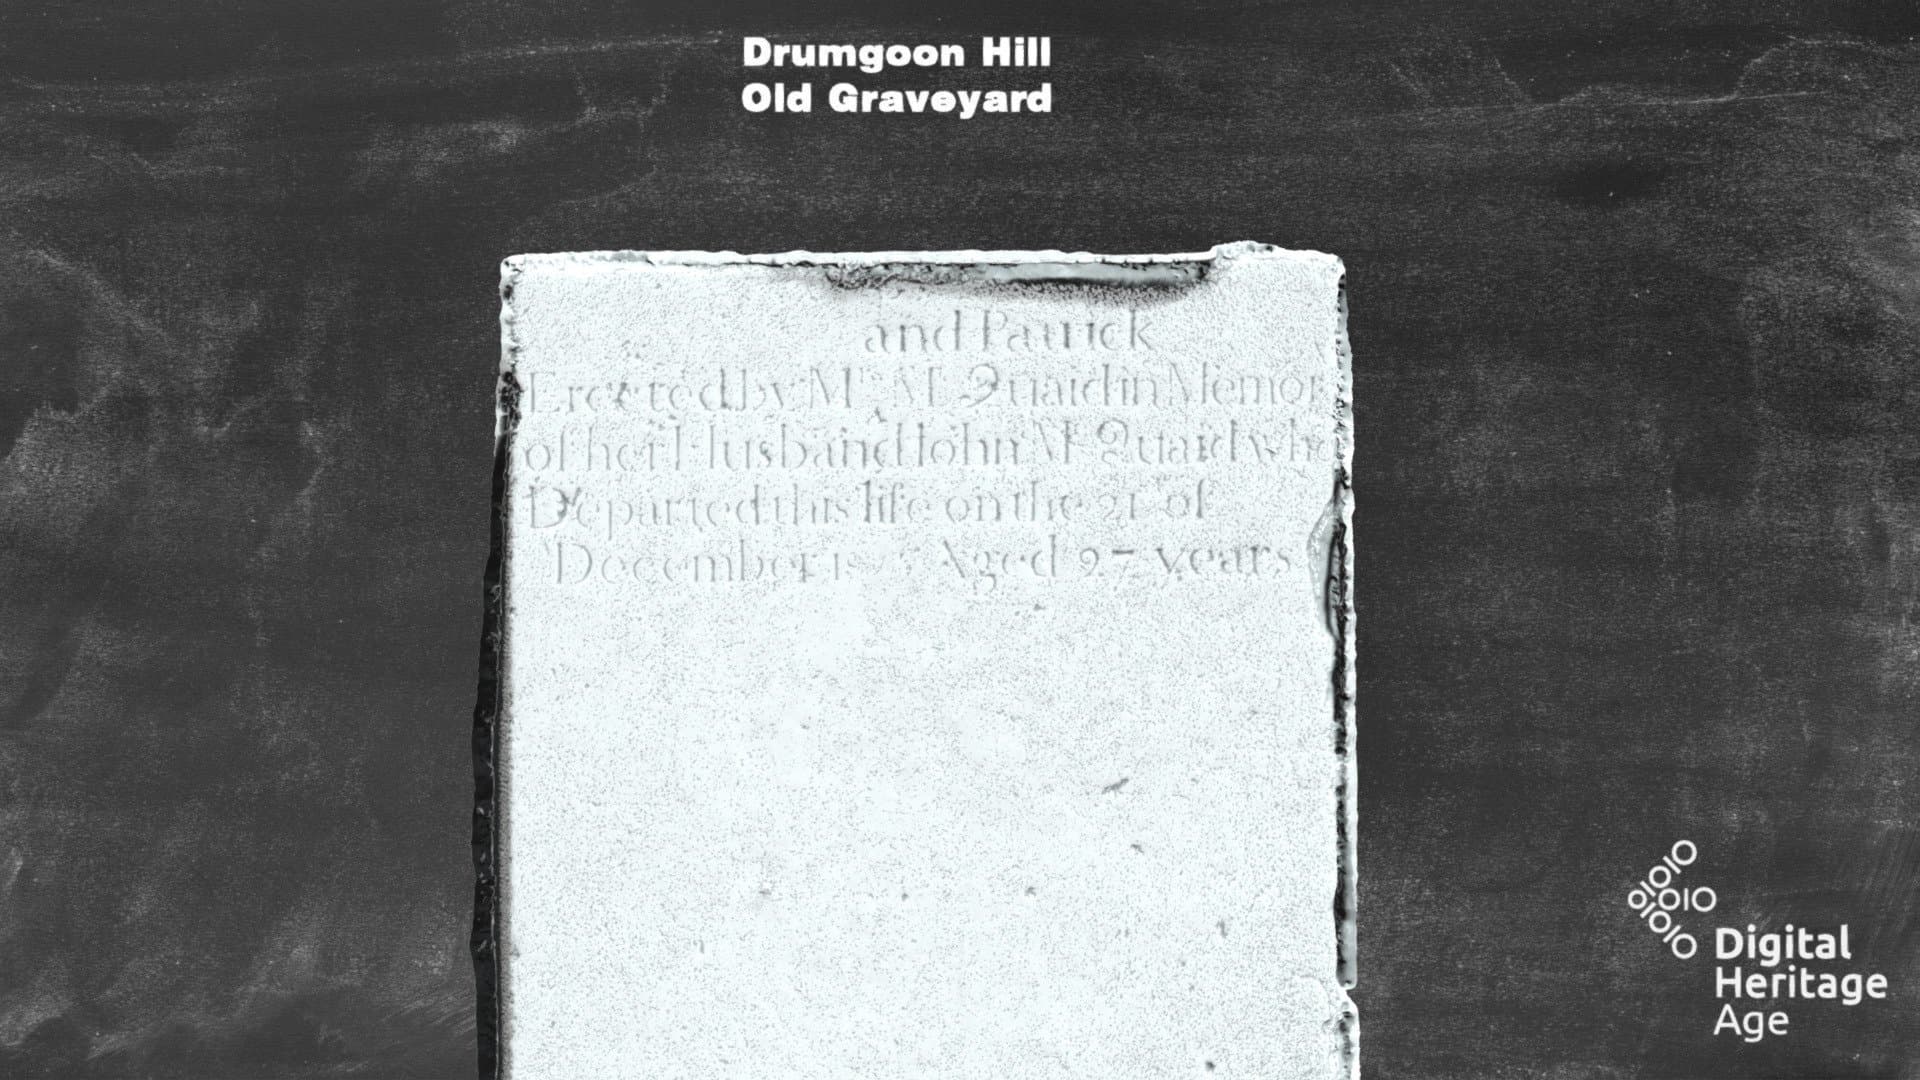 Drumgoon Hill
Old Graveyard
and Patrick
Erected by Mrs Mc Quaid in Memor
of her Husband John Mc Quaid who
Departed this life on the 21 of
December Aged 27 years
Digital
Heritage
Age